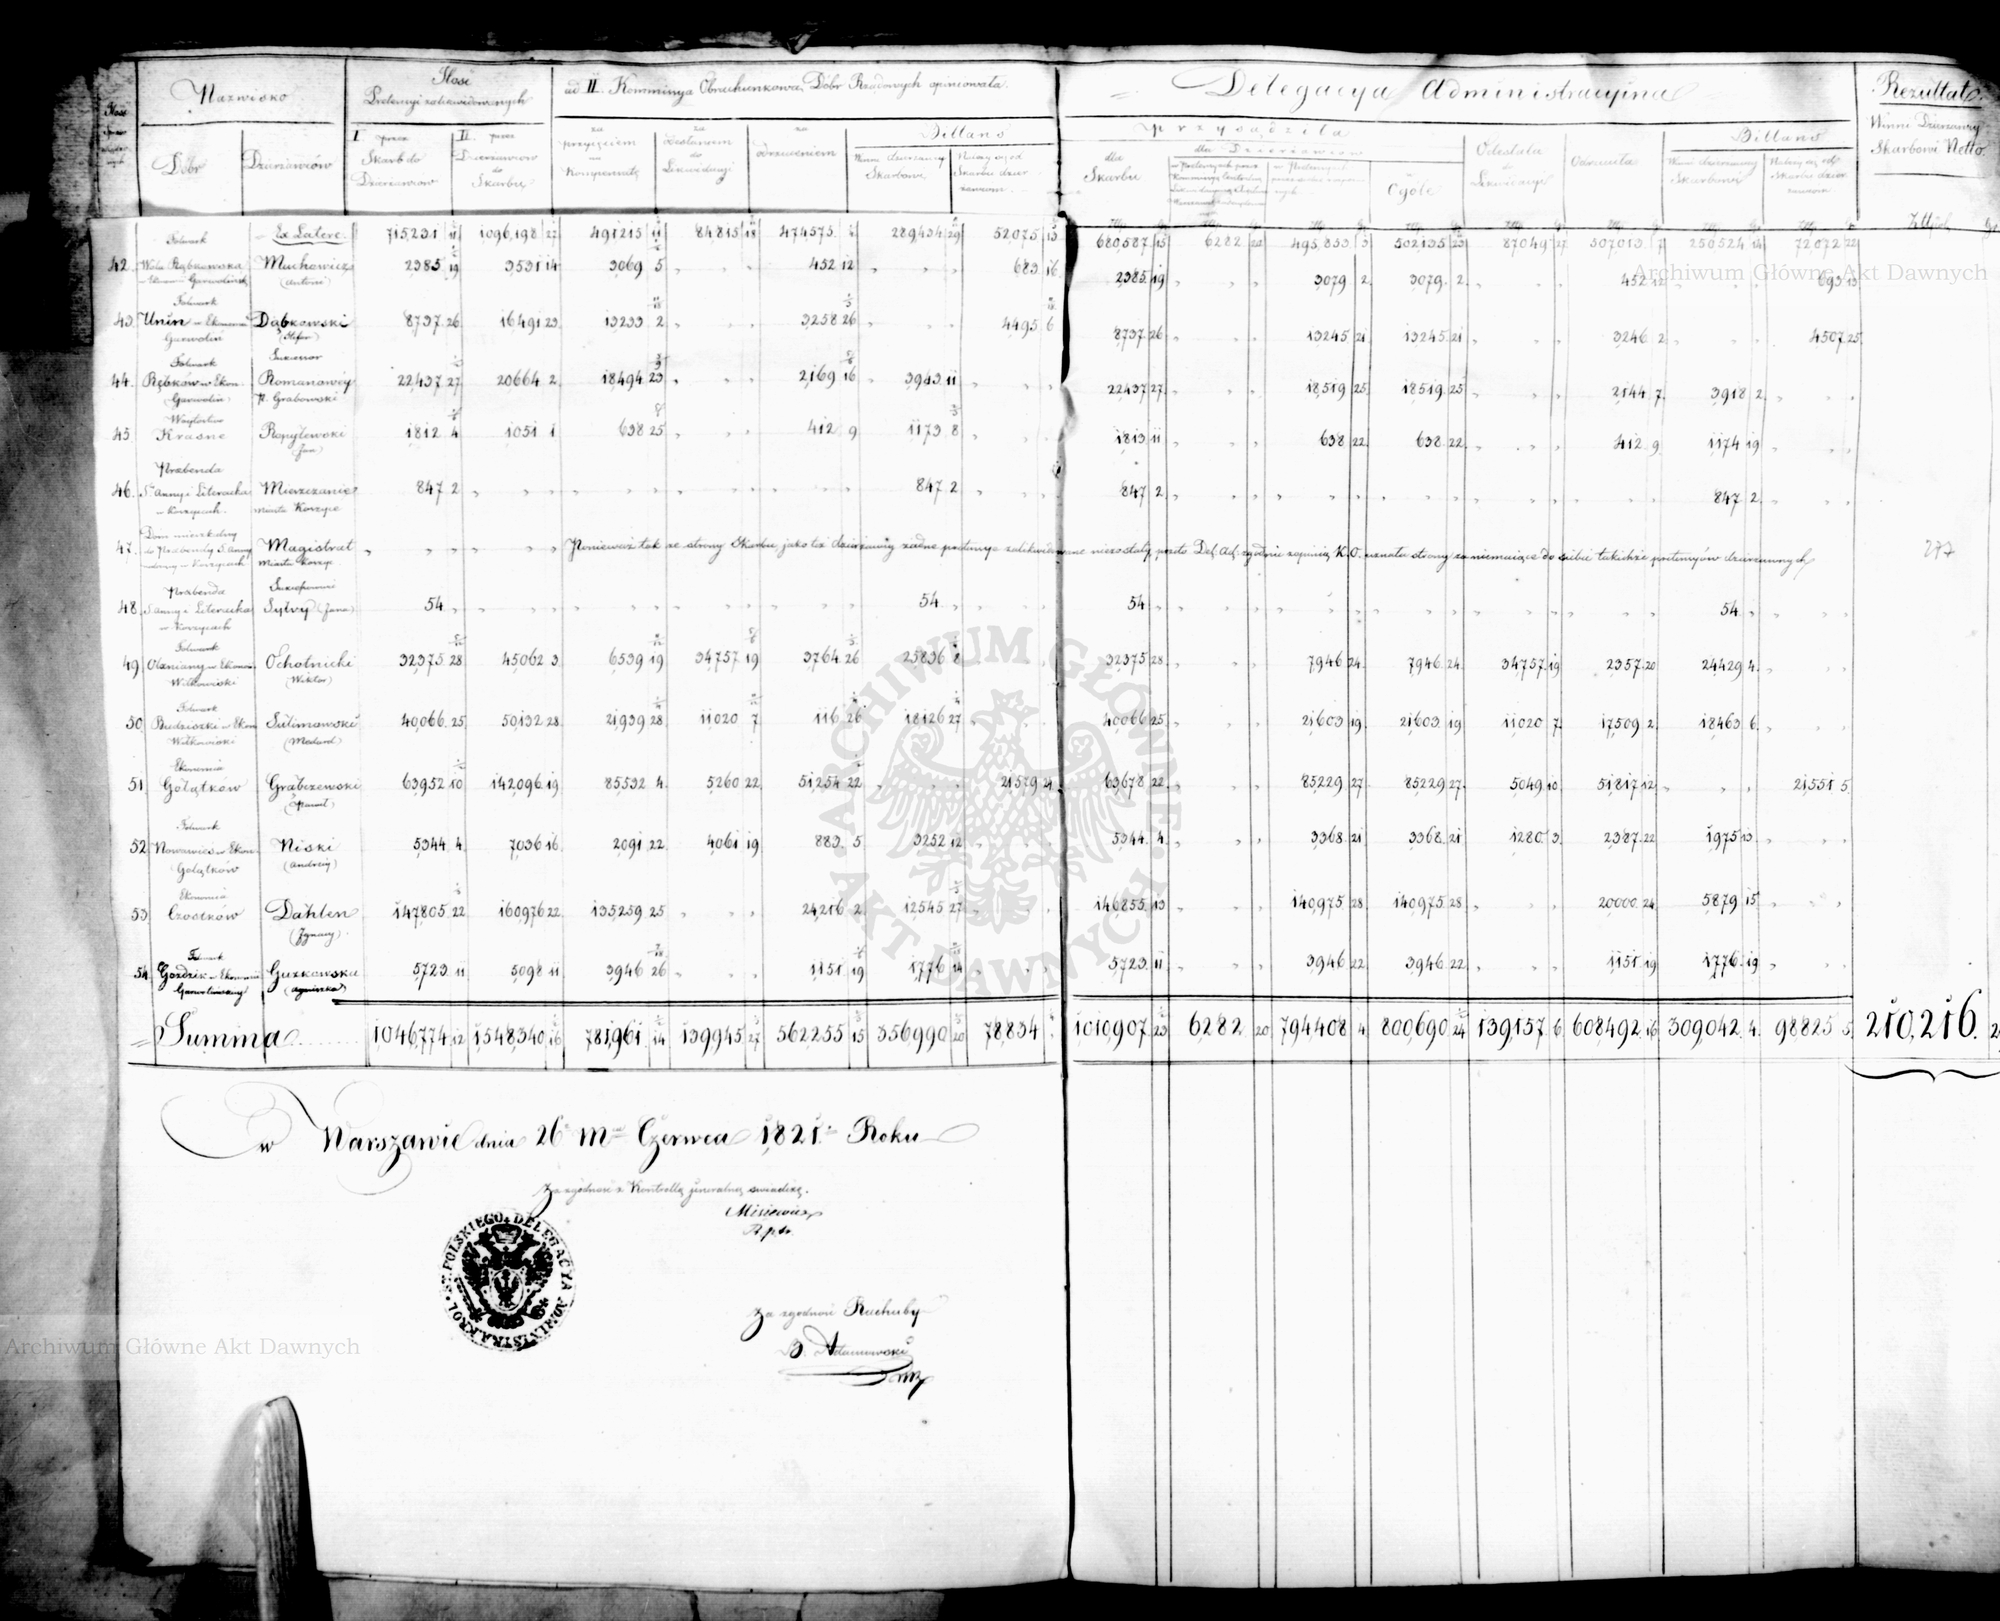 Nazwisko
Dóbr
Dzierżawców
Ilość
Pretensyi zalikwidowanych
I. przez Skarb do Dzierżawców
II. przez Dzierżawców do Skarbu
ad II. Kommissya Obrachunkowa Dóbr Rządowych opiniowała.
za przyjęciem na Kompensatę
za Zestaniem do Likwidacyi
za odrzuceniem
Billans
Winni dzierżawcy Skarbowi
Delegacya Administracyina
przysądziła
dla Skarbu
dla Dzierżawców
Ogółe
Odesłała do Likwidacyi
Odrzuciła
Billans
Winni dzierżawcy Skarbowi
Rezultat.
Winni Dzierżawcy
Skarbowi Netto.
Ex Latere. 715,231 11 1,096,198 27 491215 11 84815 18 474575 289,434 29 52,075 13 680,587 15 6282 20 495,853 3 502135 23 87049 27 507013 7 250524 14 72,072 22
Folwark
42. Wola Rębkowska Muchowicz 2385 19 3531 14 3069 5 452 12 683 16 2385 19 3079 2 3079 2 452 12 693 13
(Antoni)
Folwark
43. Unin w Ekonomii Dąbkowski 8737 26 16491 23 13233 2 3258 26 4495 6 8737 26 13245 21 13245 21 3246 2 4507 25
Garwolin (Stefan)
Folwark Sukcessor
44. Rębków w Ekon. Romanowey 22,437 27 20664 2 18494 23 2,169 16 3943 11 22437 27 18,519 25 18519 25 2144 7 3918 2
(Garwolin) Grabowski
Woytostwo
45. Krasne Kopytewski 1812 4 1051 1 638 25 412 9 1173 8 1813 11 638 22 638 22 412 9 1174 19
(Jan)
Præbenda
46. S. Anny i Literacka Mieszczanie 847 2 847 2 847 2 847 2
w Korzycach. Miasta Korzyce
Dom mieszkalny
47. do Præbendy S. Anny Magistrat Ponieważ tak ze strony Skarbu jako też dzierżawcy żadne pretensye zalikwidowane niezostały, przeto Del. Ad. zgodnie z opinią K.O. uznała strony za niemaiące do siebie takichże pretensyów dzierżawnych
w Korzycach Miasta Korzyce
277
Præbenda
48. S. Anny i Literacka Sylwy (Jana) 54 54 54 54
w Korzycach
Folwark
49. w Ekonom. Ochotnicki 32375 28 45062 3 6539 19 34757 19 3764 26 25836 8 32375 28 7946 24 7946 24 34757 19 2357 20 24429 4
Wilkowiski (Wiktor)
Folwark
50. Budziszki w Ekon Sulimowski 40,066 25 50132 28 21,939 28 11020 7 116 26 18126 27 40066 25 21603 19 21603 19 11020 7 17509 2 18463 6
Wilkowiski (Medard)
Ekonomia
51. Gołątków Grabczewski 63952 10 142,096 19 85532 4 5260 22 51254 22 21579 24 63678 22 85229 27 85229 27 5049 10 51817 12 21551 5
(Paweł)
Folwark
52. Nowawieś w Ekon. Niski 5344 4 7036 16 2091 22 4061 19 883 5 3252 12 5344 4 3368 21 3368 21 1280 3 2387 22 1975 13
Gołątków (Andrzey)
Ekonomia
53. Czostków Dahlen 147805 22 160976 22 135259 25 24216 2 12545 27 146855 13 140975 28 140975 28 20000 24 5879 15
(Ignacy).
Folwark
54. Gozdzik w Ekonomii Guzkowska 5723 11 5098 11 3946 26 1151 19 1776 14 5723 11 3946 22 3946 22 1151 19 1776 19
(Agnieszka)
Summa 1,046,774 12 1,548,340 16 781,961 14 139945 27 562255 15 356990 20 78,834 1,010,907 23 6,282 20 794408 4 800690 24 139,157 6 608,492 16 309,042 4 98825 5 210,216.
w Warszawie dnia 26 Mca Czerwca 1821 Roku
Za zgodność z Kontrollą jeneralną swiadczę.
Misiewicz
Za zgodność Rachuby
B. Adamowski
KRÓL. POLSKIEGO DELEGACYA ADMINISTRA.
ARCHIWUM GŁÓWNE AKT DAWNYCH
Archiwum Główne Akt Dawnych
Archiwum Główne Akt Dawnych